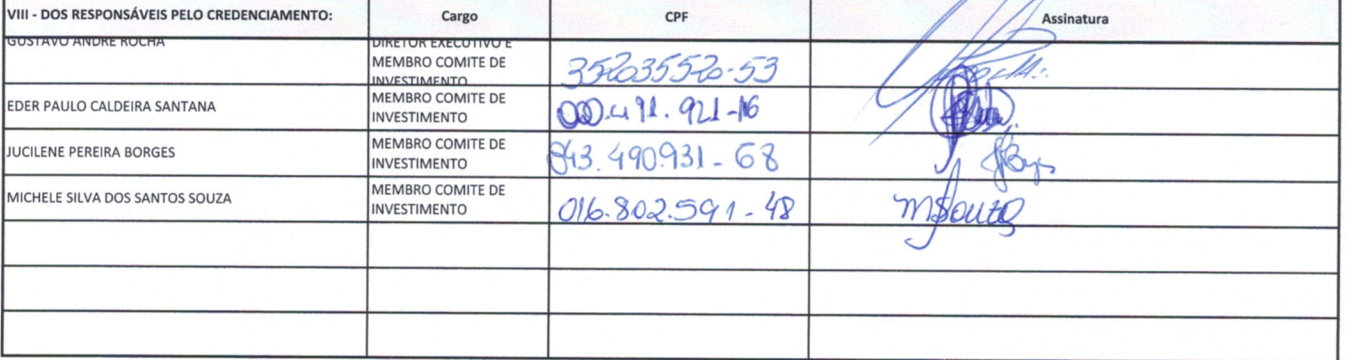 VIII - DOS RESPONSÁVEIS PELO CREDENCIAMENTO: Cargo CPF Assinatura
GUSTAVO ANDRE ROCHA DIRETOR EXECUTIVO E
MEMBRO COMITE DE
INVESTIMENTO
352035520-53
EDER PAULO CALDEIRA SANTANA MEMBRO COMITE DE
INVESTIMENTO
000.491.921-16
JUCILENE PEREIRA BORGES MEMBRO COMITE DE
INVESTIMENTO
843.490.931-68
MICHELE SILVA DOS SANTOS SOUZA MEMBRO COMITE DE
INVESTIMENTO
016.802.591-48 MSouza